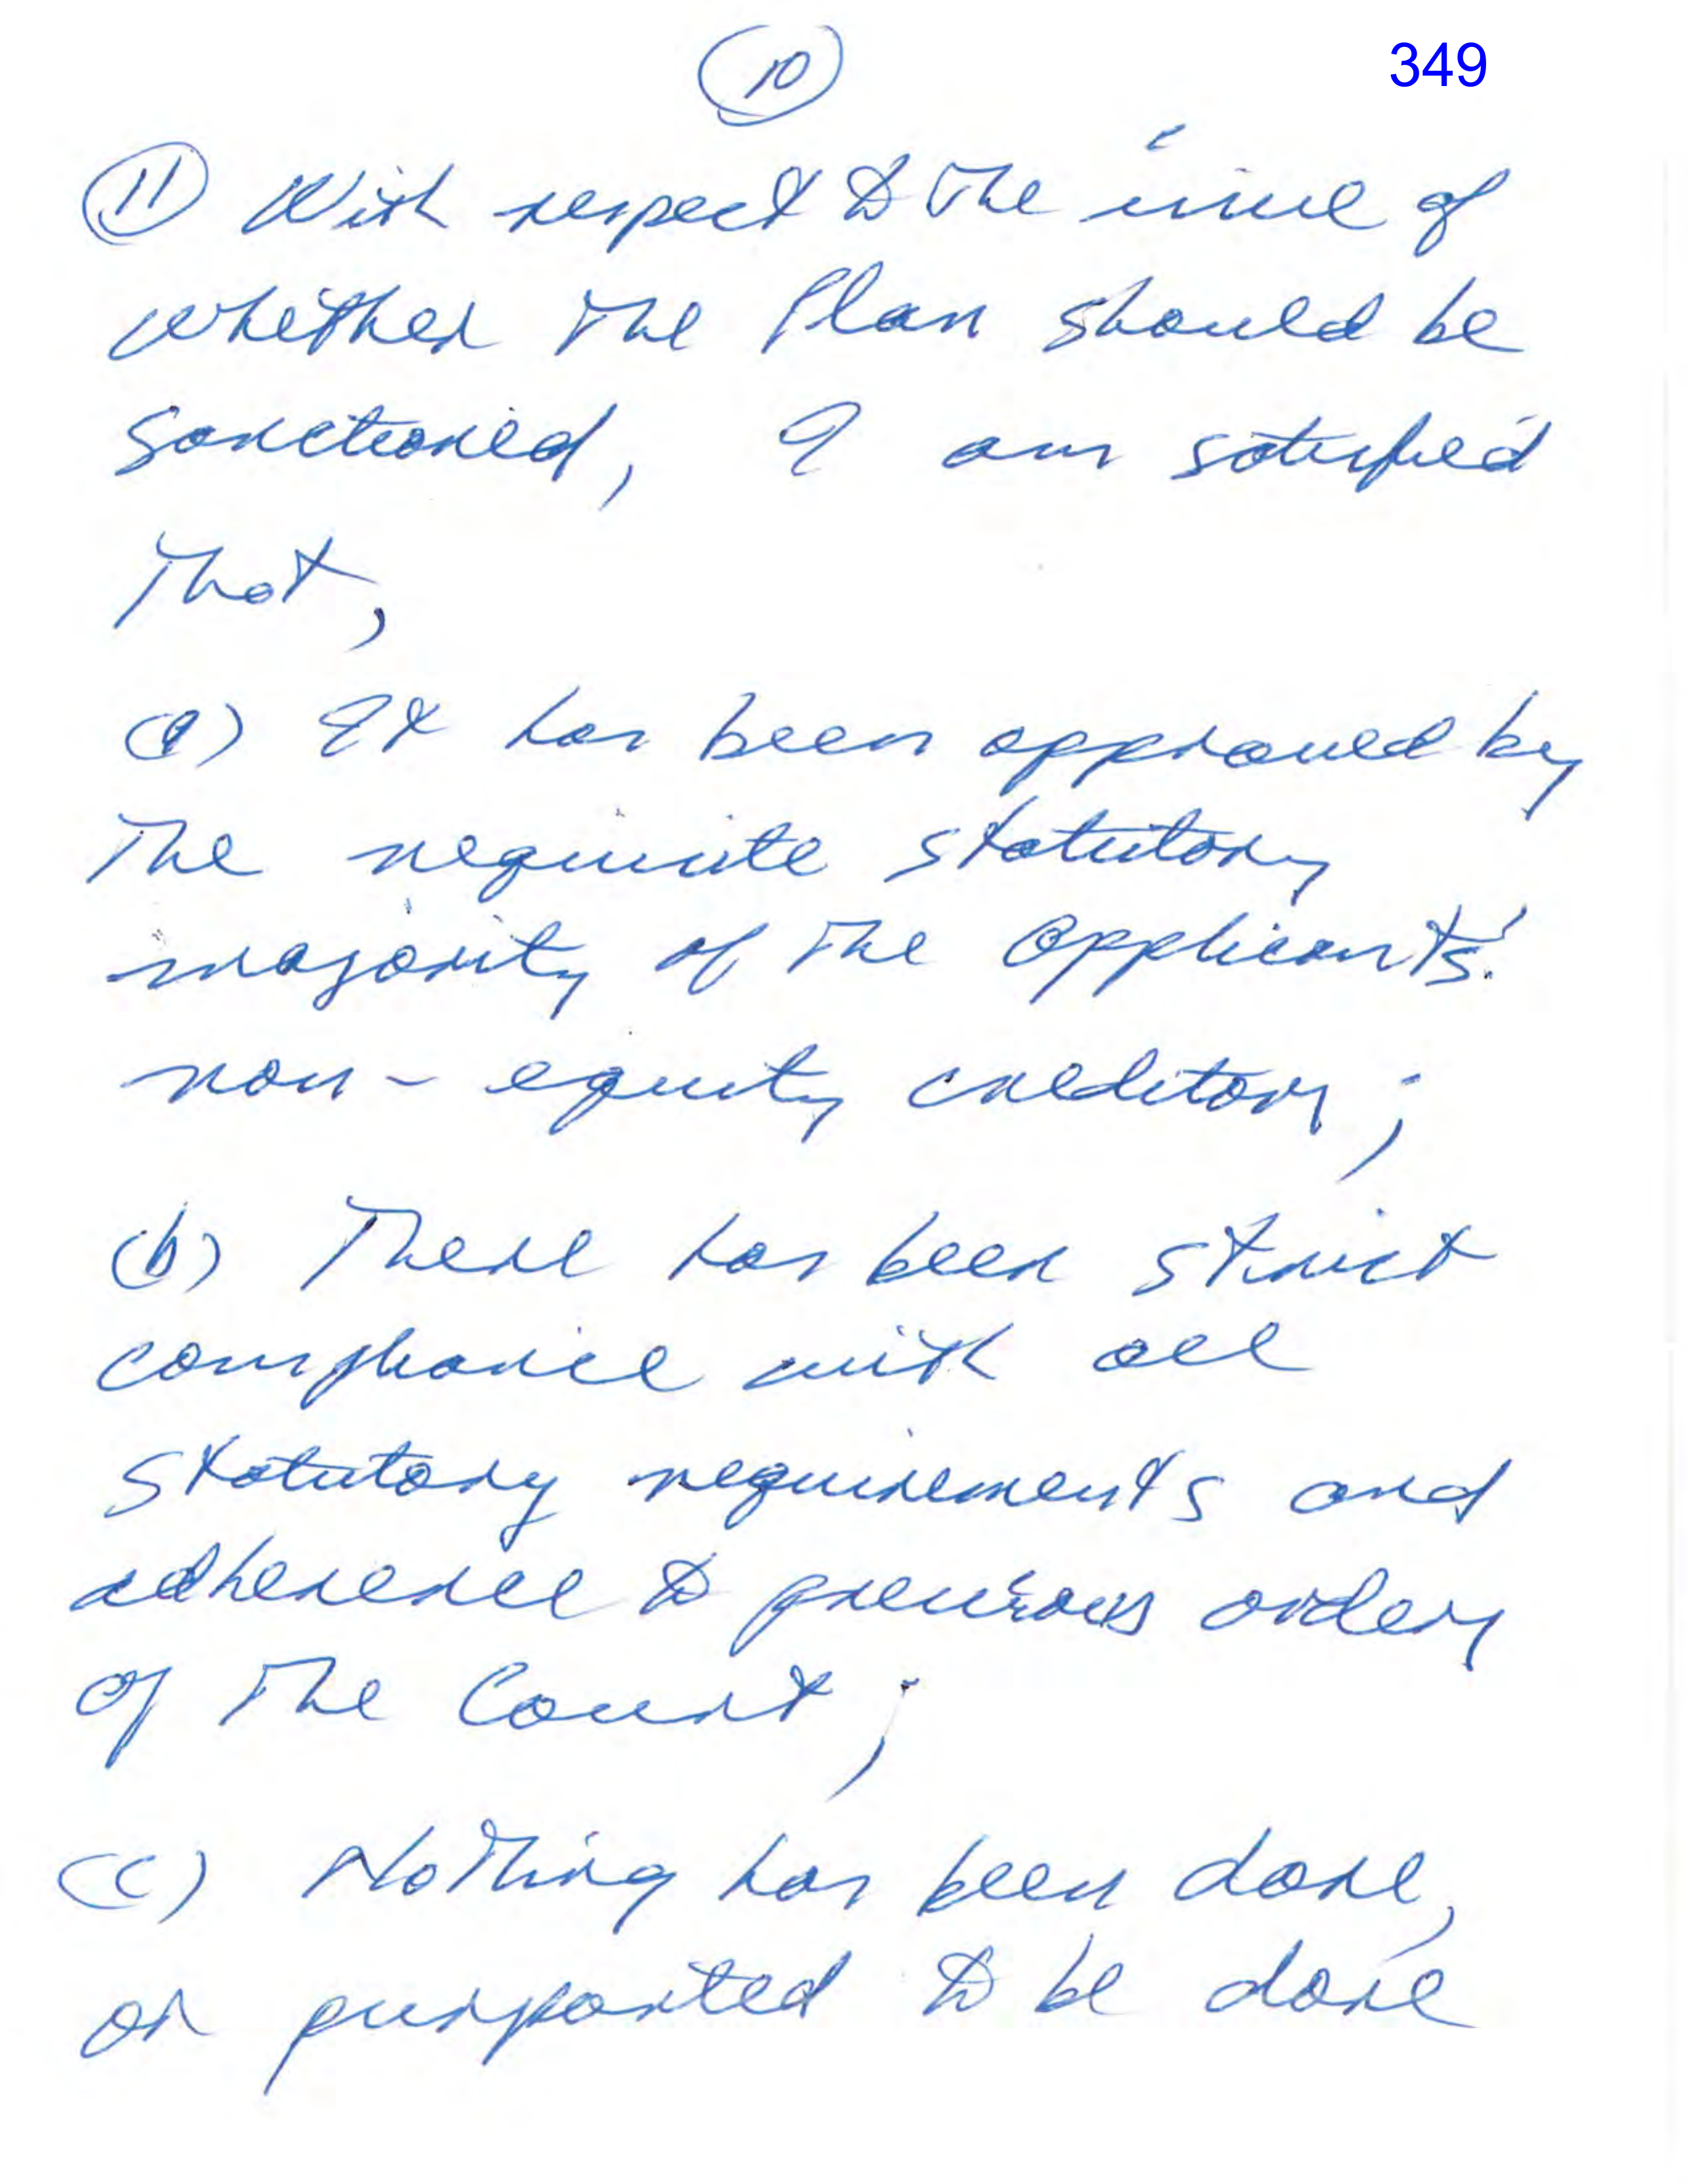 10
349
11 With respect to the issue of
whether the Plan should be
sanctioned, I am satisfied
that,
(a) It has been approved by
the requisite statutory
majority of the Applicants'
non-equity creditors;
(b) There has been strict
compliance with all
statutory requirements and
adherence to previous orders
of the Court;
(c) Nothing has been done,
or purported to be done